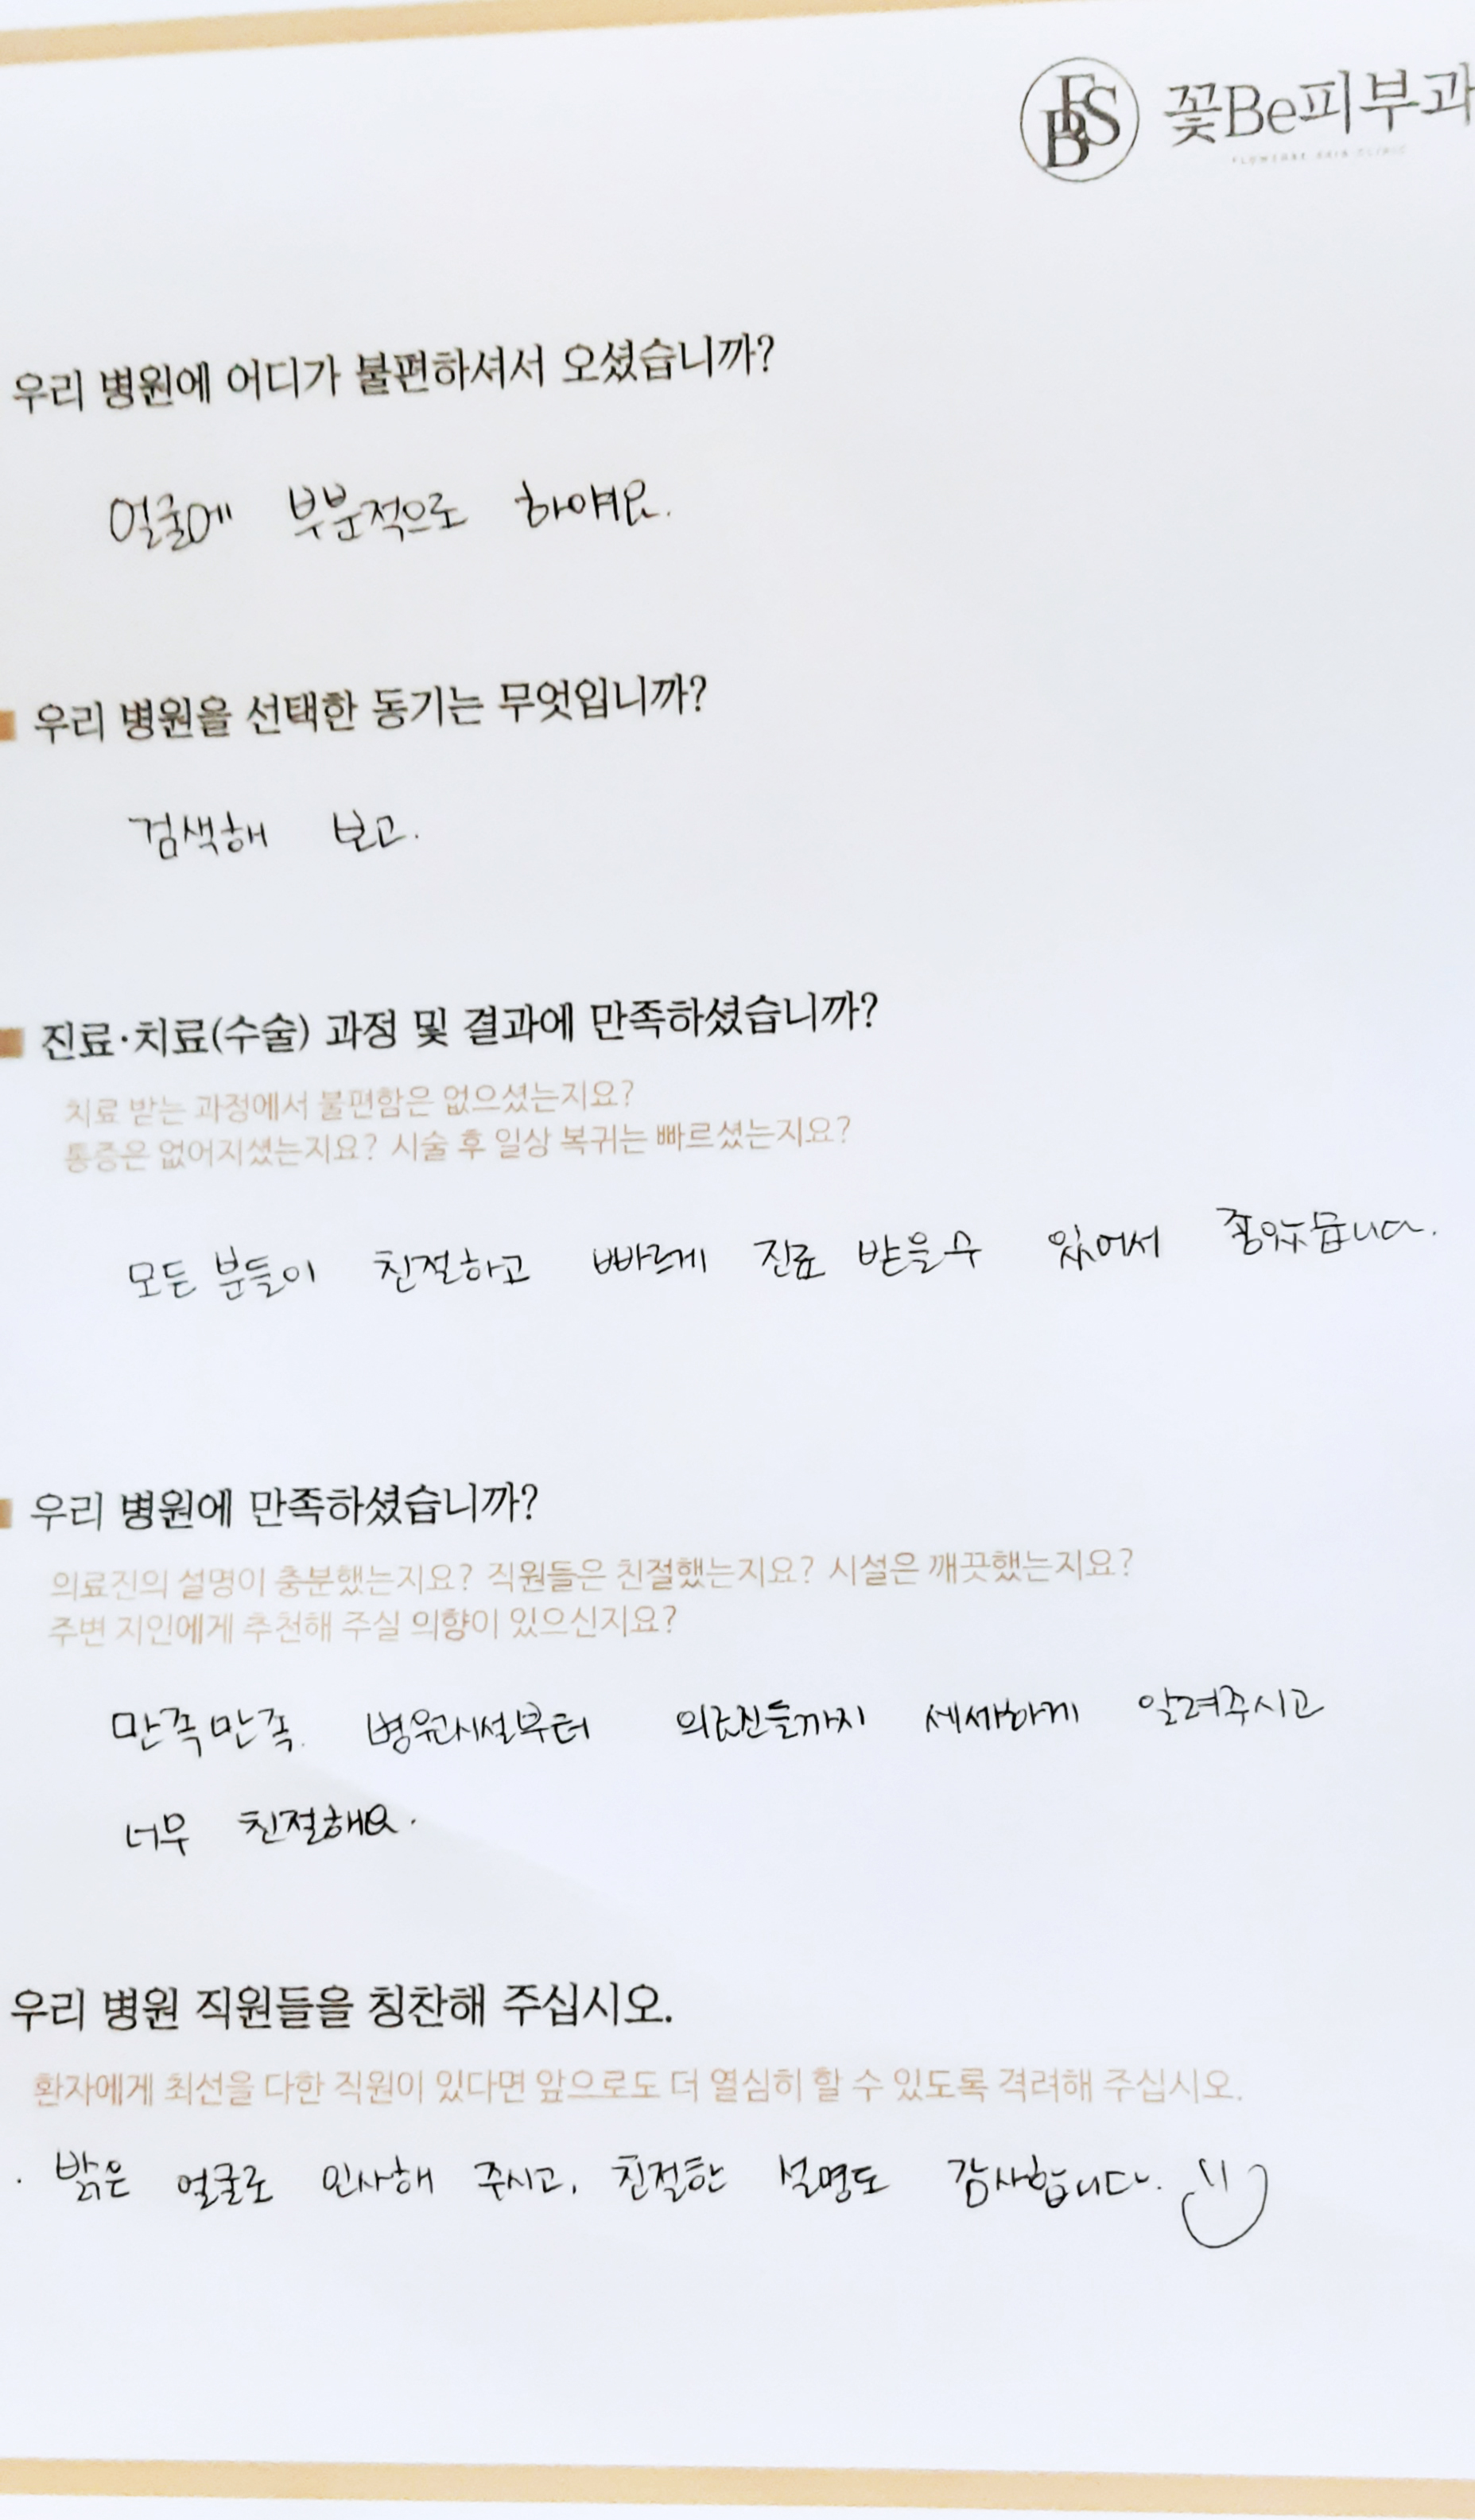 FBS 꽃Be피부과
FLOWERBE SKIN CLINIC
우리 병원에 어디가 불편하셔서 오셨습니까?
얼굴에 부분적으로 하얘요.
우리 병원을 선택한 동기는 무엇입니까?
검색해 보고.
진료·치료(수술) 과정 및 결과에 만족하셨습니까?
치료 받는 과정에서 불편함은 없으셨는지요?
통증은 없어지셨는지요? 시술 후 일상 복귀는 빠르셨는지요?
모든 분들이 친절하고 빠르게 진료 받을수 있어서 좋았습니다.
우리 병원에 만족하셨습니까?
의료진의 설명이 충분했는지요? 직원들은 친절했는지요? 시설은 깨끗했는지요?
주변 지인에게 추천해 주실 의향이 있으신지요?
만족만족. 병원시설부터 의료진들까지 세세하게 알려주시고
너무 친절해요.
우리 병원 직원들을 칭찬해 주십시오.
환자에게 최선을 다한 직원이 있다면 앞으로도 더 열심히 할 수 있도록 격려해 주십시오.
· 밝은 얼굴로 인사해 주시고, 친절한 설명도 감사합니다.